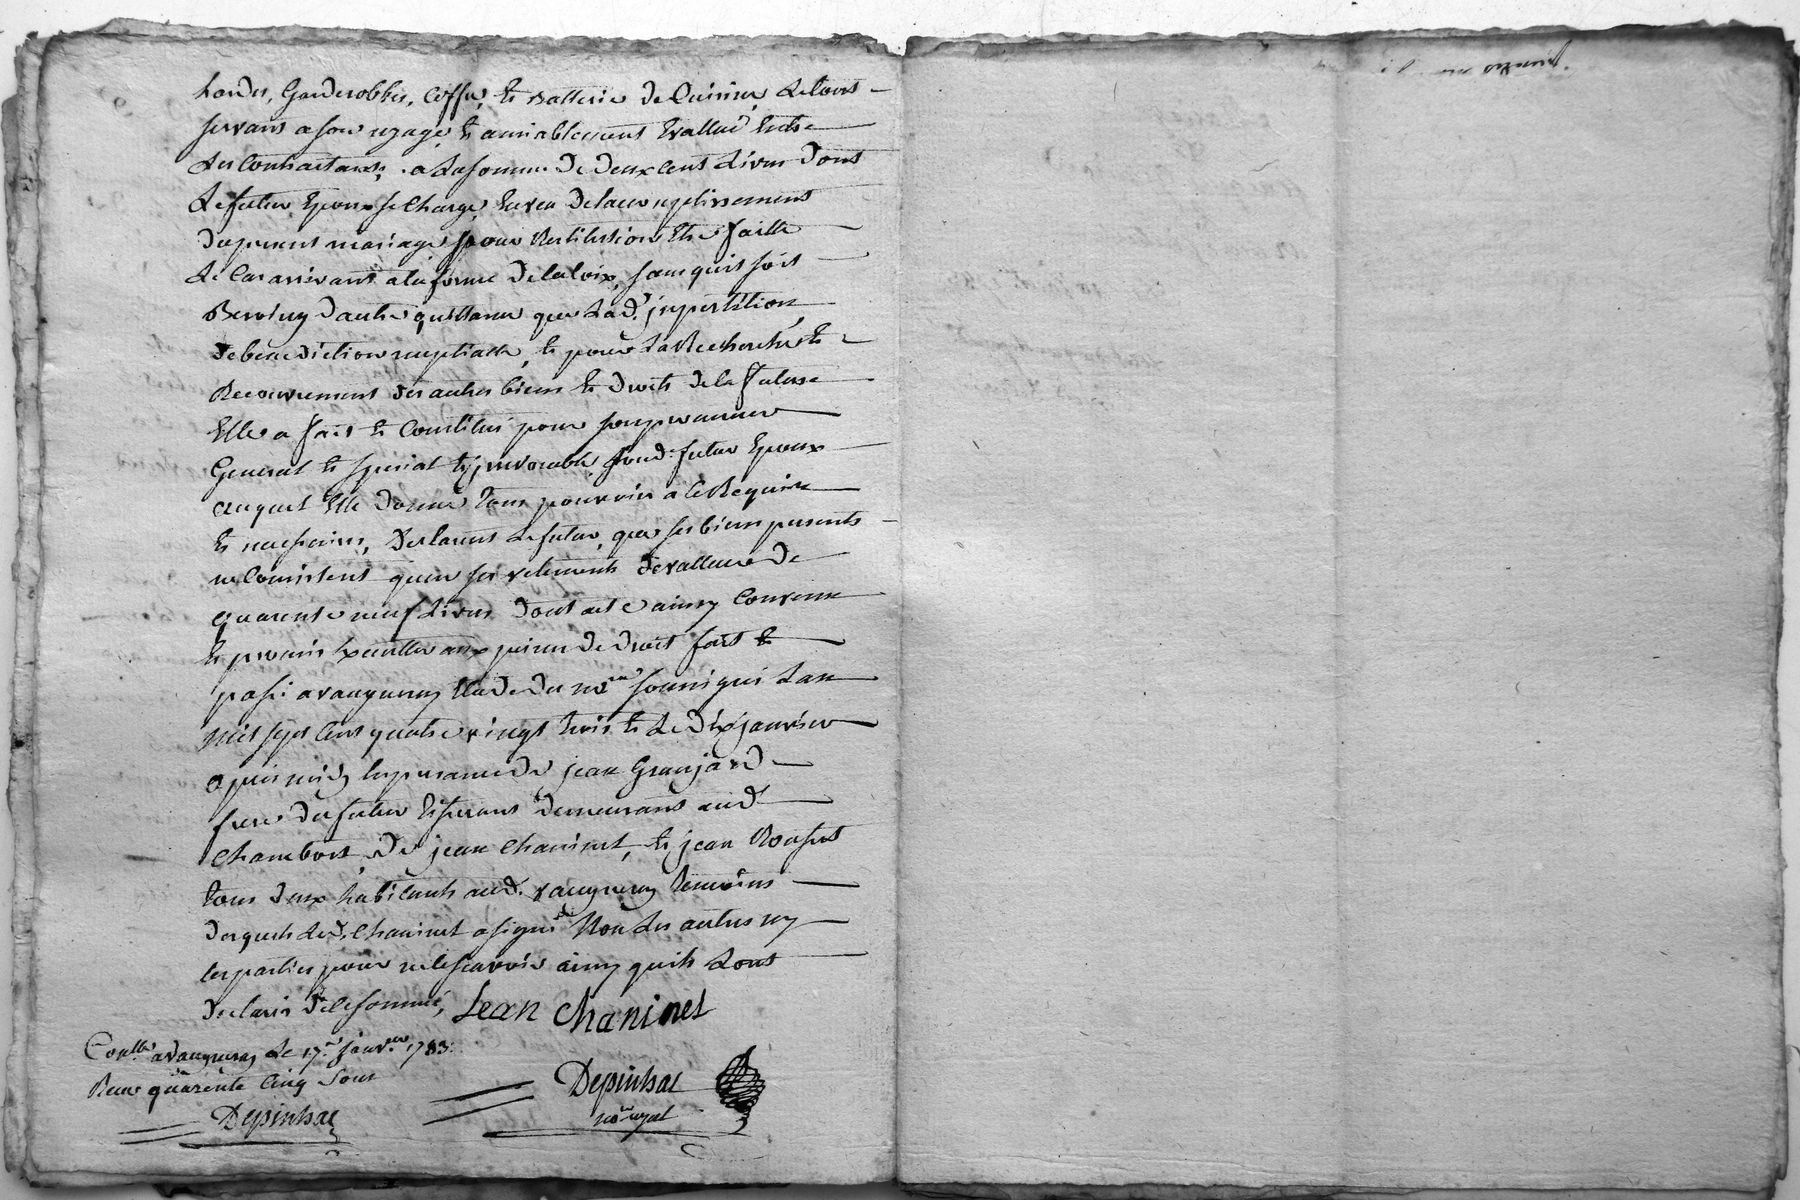 hardes, Garderobbes, Coffre, et Batterie de Cuisine, Le tout
servant a son uzage, et amiablement Evallué Entre
Les Contractants, a La somme de deux cent Livres dont
Le futur Epoux se Charge, En veu de laccomplissement
du present mariage pour Restitution Etre faitte
Le Cas arrivant a la forme de la loix, sans quil soit
Besoing dautre quittance que Lad. jnpartition
de benediction nuptialle, et pour La Recherche et
Recouvrement des autres biens et droits de la future
Elle a fait et Constitué pour son procureur
General et special et jrrevocable, sond. futur Epoux
auquel Elle donne tous pouvoirs a ce Requis
et necessaires, Declarant Le futur, que ses biens presents
ne Consistent quen ses vetements de valleur de
quarente neuf Livres dont acte ainsy Convenu
et promis Executter aux peines de droit fait et
passé a vaugneray Etude du no.re soussigné Lan
mil sept Cent quatre vingt trois et Le dix janvier
apres midy En presance de jean Granjard
frere du futur Epoux demeurant aud.
Chambost, de jean Chaninet, et jean
tous deux habitants aud. vaugneray temoins
desquels Led. Chaninet a signé Non Les autres ny
les parties pour ne le scavoir ainsy quils Lont
declaré de ce sommé, Jean Chaninet
Con.llé a vaugneray Le 17.e janv.er 1783.
Receu quarente Cinq sous
Depinhac
no.re royal
Depinhac